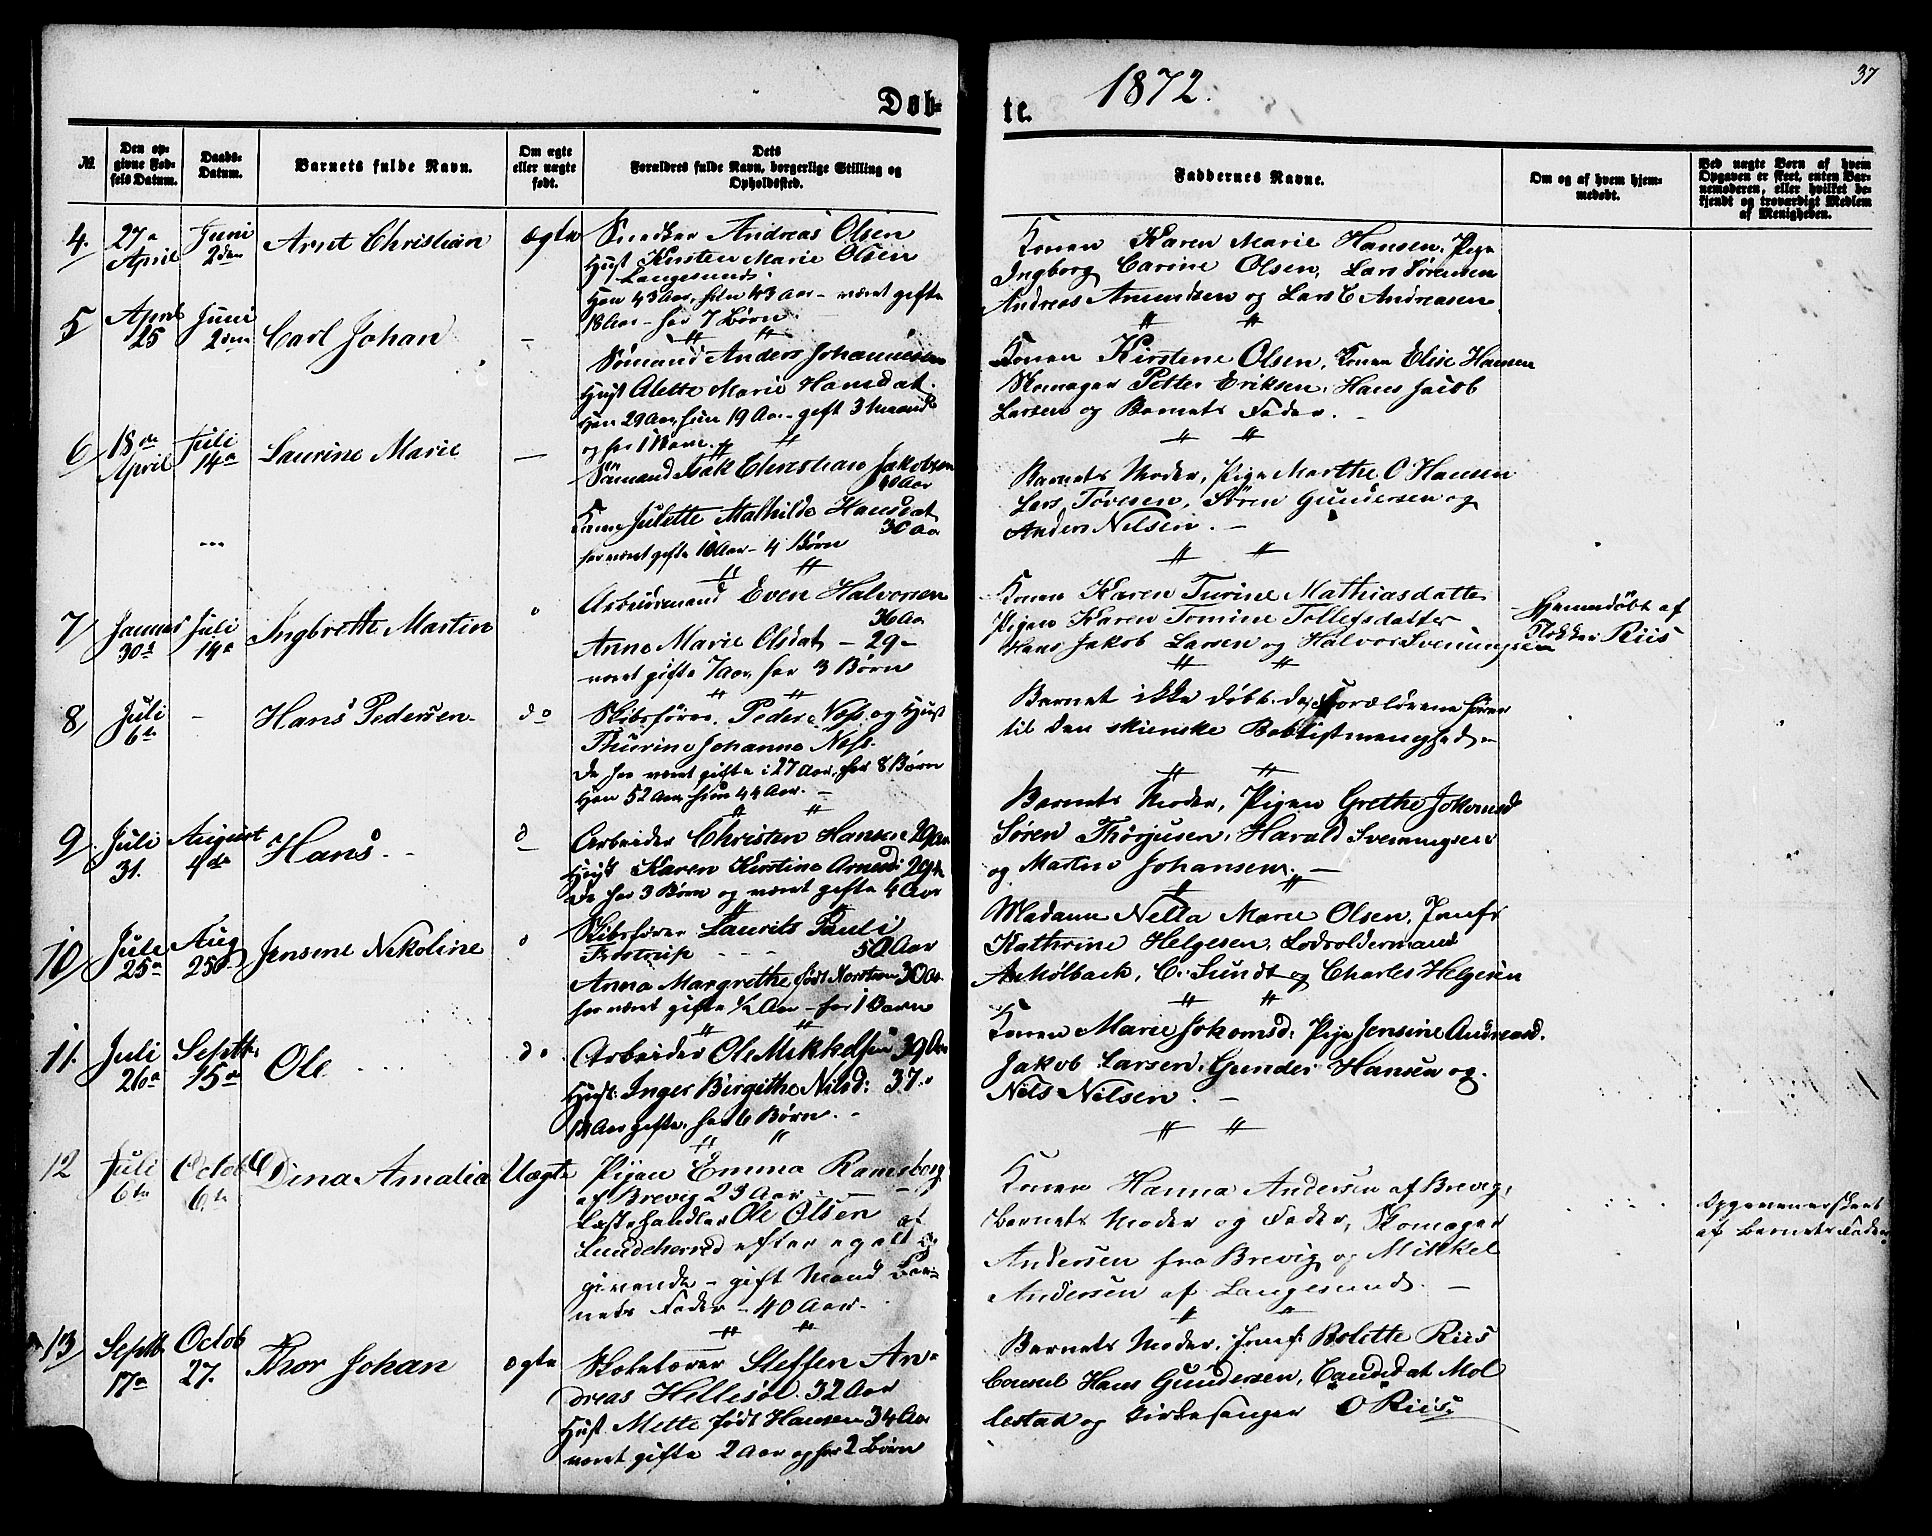 Døb-
te.
1872.
37
№
Den op-
givne Fød-
sels Datum.
Daabs-
Datum.
Barnets fulde Navn.
Om ægte
eller uægte
født.
Dets
Forældres fulde Navn, borgerlige Stilling og
Opholdssted.
Faddernes Navne.
Om og af hvem hjem-
medøbt.
Ved uægte Børn af hvem
Opgaven er skeet, enten Bar-
nemoderen, eller hvilket be-
kjendt og troværdigt Medlem
af Menigheden.
4.
27
April
Juni
2den
Arnt Christian
ægte
Snedker Andreas Olsen
Hust Kirsten Marie Olsen
Langesund
Han 43 Aar, hun 43 Aar – været gifte
18 Aar – har 7 Børn
Konen Karen Marie Hansen, Pige
Ingborg Carine Olsen, Lars Sørensen
Andreas Amundsen og Lars C Andreasen
5
April
25
Juni
2den
Carl Johan
–
Sømand Anders Johannesen
Hust Alette Marie Hansdat.
Han 29 Aar, hun 19 Aar – gift 3 Maaned
og har 1 Barn.
Konen Kirstene Olsen, Konen Elise Hansen
Skomager Petter Eriksen, Hans Jacob
Larsen og Barnets Fader. –
6
18de
April
Juli
14de
Laurine Marie
–
Sømand Isak Christian Jakobsen
40 Aar
Kone Julette Mathilde Hansdat
30 Aar
har været gifte 10 Aar – 4 Børn
Barnets Moder, Pige Marthe O Hansen
Lars Tovesen, Søren Gundersen og
Anders Nilsen. –
7
Januar
30
Juli
14
Ingbreth Martin
Arbeidsmand Even Halvorsen
36 Aar
Anne Marie Olsdat – 29 –
været gifte 7 Aar, har 3 Børn
Konen Karen Turine Mathiasdatter
Pigen Karen Tomine Tollefsdatter
Hans Jakob Larsen og Halvor Svenungsen
Hjemmedøbt af
Klokker Riis
8
Juli
6te
–
Hans Pedersen
do
Skibsfører Peder Ness og Hust
Thurine Johanne Ness.
De har været gifte i 27 Aar, har 8 Børn
Han 52 Aar, hun 44 Aar. –
Barnet ikke døbt. da Forældrene hører
til den skienske Babtistmenghed –
9
Juli
31.
August
4de
Hans
d
Arbeider Christen Hansen 29 Aar
Hust Karen Kirstine Arnesd 29 Aar
De har 3 Børn og været gifte 4 Aar
Barnets Moder, Pigen Grethe Johansd
Søren Thorjusen, Harald Svenningsen
og Martin Johansen. –
10
Juli
25
Aug
25
Jensine Nikoline
Skibsfører Laurits Pauli
50 Aar
Anna Margrethe født 30 Aar
har været gifte ½ Aar – har 1 Barn
Madame Nella Marie Olsen, Jomfr
Kathrine Helgesen, Lodsoldermand
A Mølback, C. Sundt og Charles Helgesen
11.
Juli
26
Septb.
15
Ole
do
Arbeider Ole Mikkelsen 39 Aar
Hust. Inger Birgithe Nilsd: 37
12 Aar gifte, har 6 Børn. –
Konen Marie Johansd: Pige Jensine Andreasd.
Jakob Larsen, Gunder Hansen og
Nils Nilsen. –
12
Juli
6te
Octob
6te
Dina Amalia
Uægte
Pigen Emma Ramsborg
af Brevig 23 Aar –
Læstehandler Ole Olsen af
Lundeherred efter eget
givende – gift Mand Bar-
nets Fader – 40 Aar.
Konen Hanna Andersen af Brevig,
Barnets Moder og Fader, Skomager
Andersen fra Brevig og Mikkel
Andersen af Langesund. –
Opgaven er skeet
af Barnets Fader
13
Septb
17
Octob
27.
Thor Johan
ægte
Skoletærer Steffen An-
dreas Hellesøe 32 Aar
Hust Mette født Hansen 34 Aar
været gifte 2 Aar og har 2 Børn
Barnets Moder, Jomf: Bolette Riis
Consul Hans Gundersen, Candidat Mol
lestad og Kirkesanger O Riis.